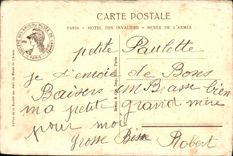 CARTE POSTALE
PARIS - HOTEL DES INVALIDES - MUSÉE DE L'ARMÉE
petite Paulette
je t'envoie de Bons
Baisers embrasse bien
ma petite grand mère
pour moi
Grosse Bise Robert